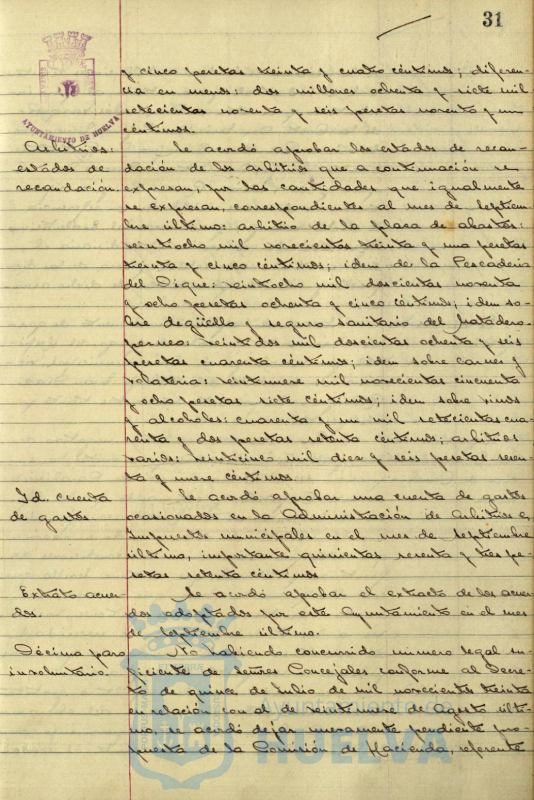 31
AYUNTAMIENTO DE HUELVA
y cinco pesetas treinta y cuatro céntimos; diferen-
cia en menos: dos millones ochenta y siete mil
setecientas noventa y seis pesetas noventa y un
céntimos.
Arbitrios:
estados de
recaudación
Se acordó aprobar los estados de recau-
dación de los arbitrios que a continuación se
expresan, por las cantidades que igualmente
se expresan, correspondientes al mes de Septiem-
bre último: arbitrio de la plaza de abastos:
veintiocho mil novecientas treinta y una pesetas
treinta y cinco céntimos; idem de la Pescadería
del Dique: veintiocho mil doscientas noventa
y ocho pesetas ochenta y cinco céntimos; idem so-
bre degüello y seguro sanitario del Matadero
permeo: veintidos mil doscientas ochenta y seis
pesetas cuarenta céntimos; idem sobre carnes y
volatería: veintinueve mil novecientas cincuenta
y ocho pesetas siete céntimos; idem sobre vinos
y alcoholes: cuarenta y un mil setecientas cua-
renta y dos pesetas setenta céntimos; arbitrios
varios: veinticinco mil diez y seis pesetas sesen-
ta y nueve céntimos.
Id. cuenta
de gastos
Se acordó aprobar una cuenta de gastos
ocasionados en la Administración de Arbitrios e
Impuestos municipales en el mes de Septiembre
último, importante quinientas sesenta y tres pe-
setas setenta céntimos
Extrato acuer-
dos.
Se acordó aprobar el extracto de los acuer-
dos adoptados por este Ayuntamiento en el mes
de Septiembre último.
Décima paro
involuntario.
No habiendo concurrido número legal su-
ficiente de señores Concejales conforme al Decre-
to de quince de Julio de mil novecientos treinta
en relación con el de veintinueve de Agosto últi-
mo, se acordó dejar nuevamente pendiente pro-
puesta de la Comisión de Hacienda, referente
Ayuntamiento de
HUELVA